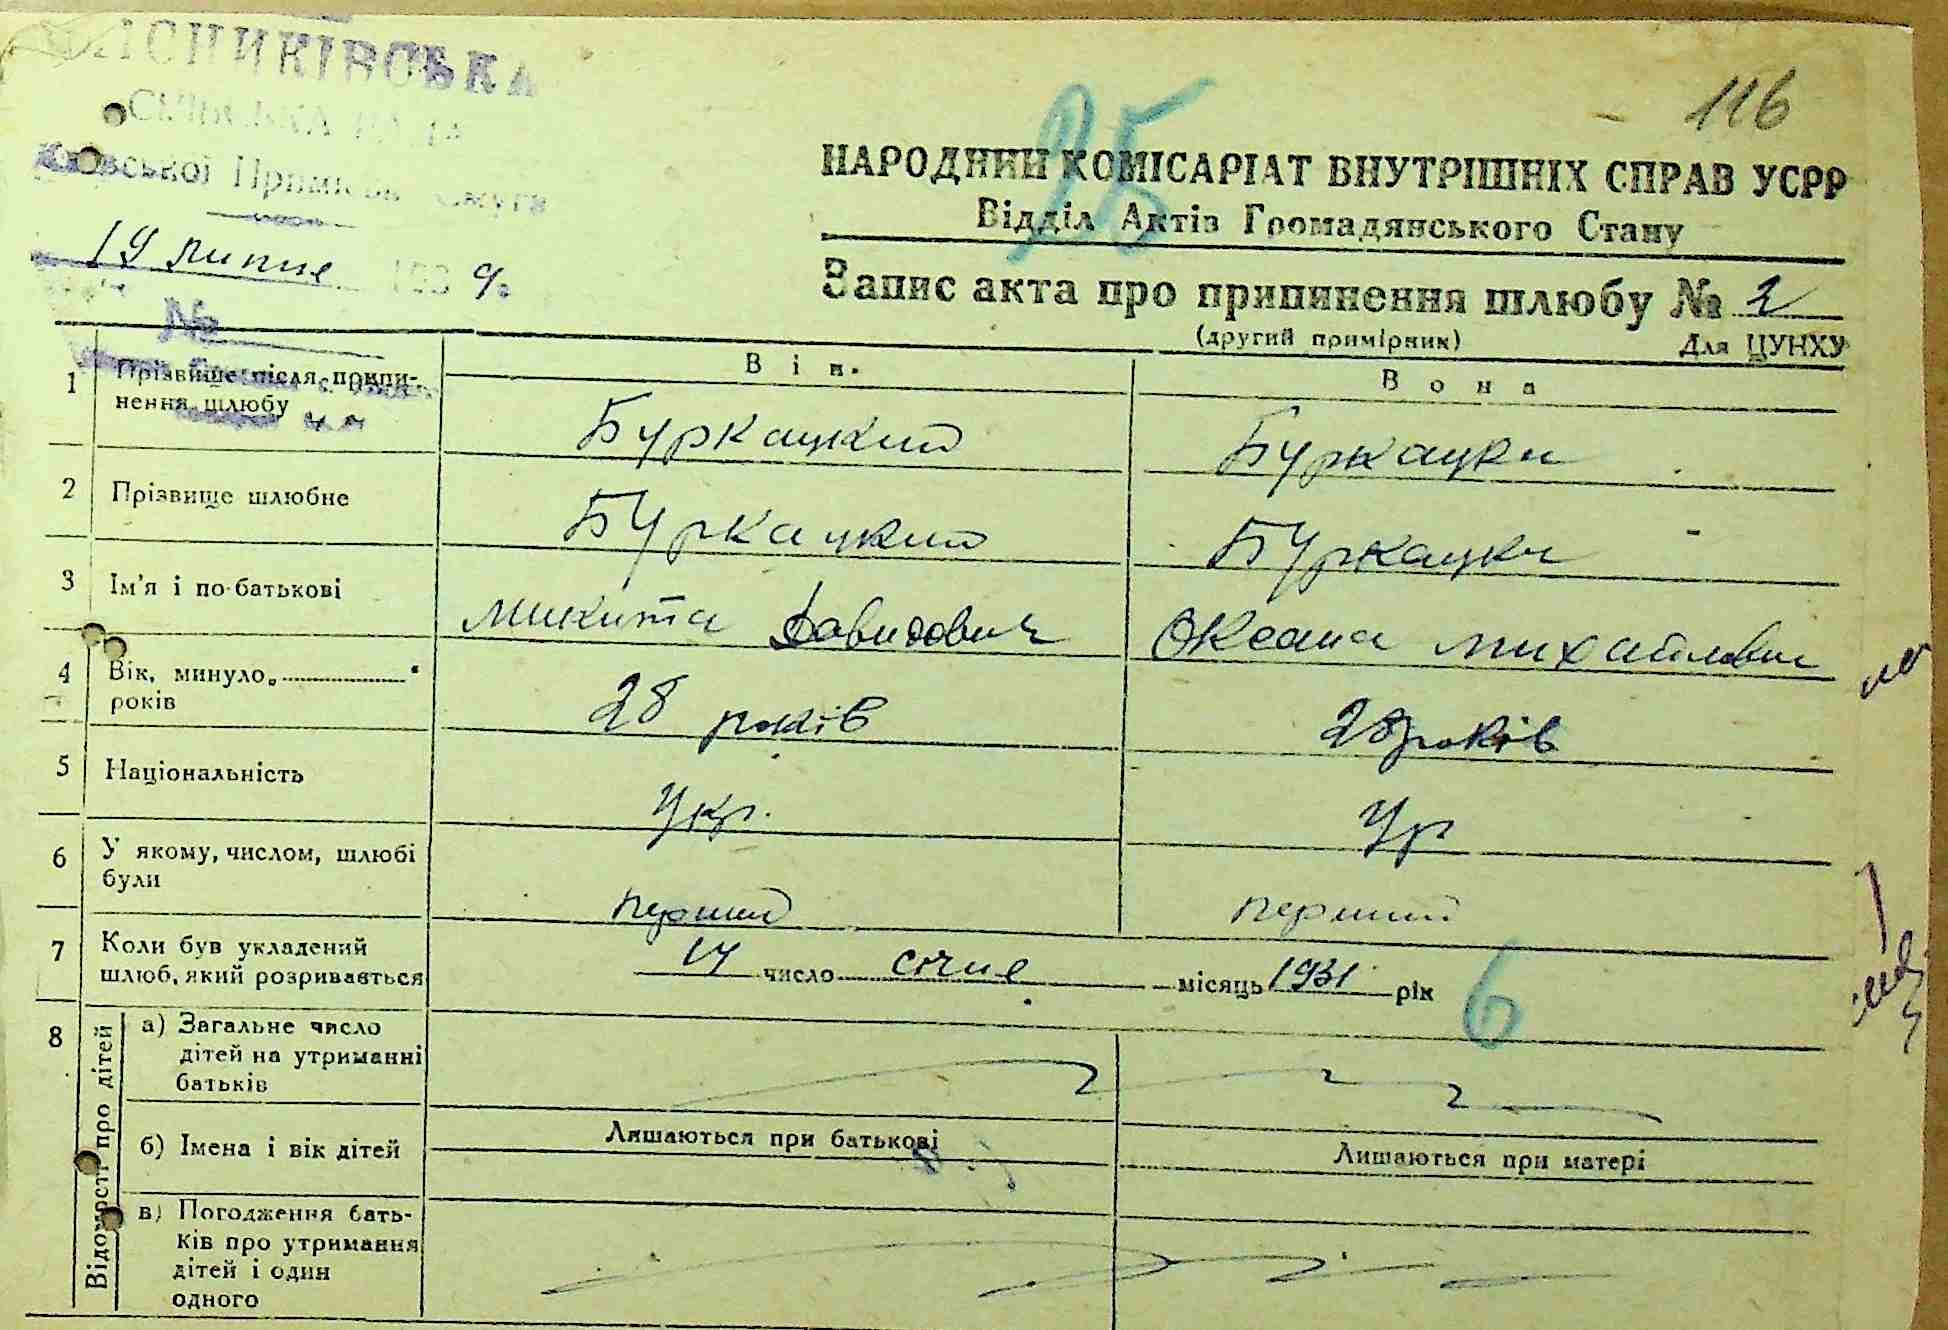 116
25
СІЛЬСЬКА РАДА
Київської
19 липня 193
№
НАРОДНИЙ КОМІСАРІАТ ВНУТРІШНІХ СПРАВ УСРР
Відділ Актів Громадянського Стану
Запис акта про припинення шлюбу № 2
(другий примірник) Для ЦУНХУ
Він. Вона
1 Прізвище після припи-
нення шлюбу Буркацкий Буркацка
2 Прізвище шлюбне Буркацкий Буркацка
3 Ім'я і по-батькові Микита Давидович Оксана Михайловна
4 Вік, минуло
років 28 років 28 років
5 Національність Укр. Ур
6 У якому, числом, шлюбі
були перший перший
7 Коли був укладений
шлюб, який розривається 14 число січня місяць 1931 рік
6
8 Відомості про дітей
а) Загальне число
дітей на утриманні
батьків
б) Імена і вік дітей Лишаються при батькові Лишаються при матері
в) Погодження бать-
ків про утримання
дітей і один
одного